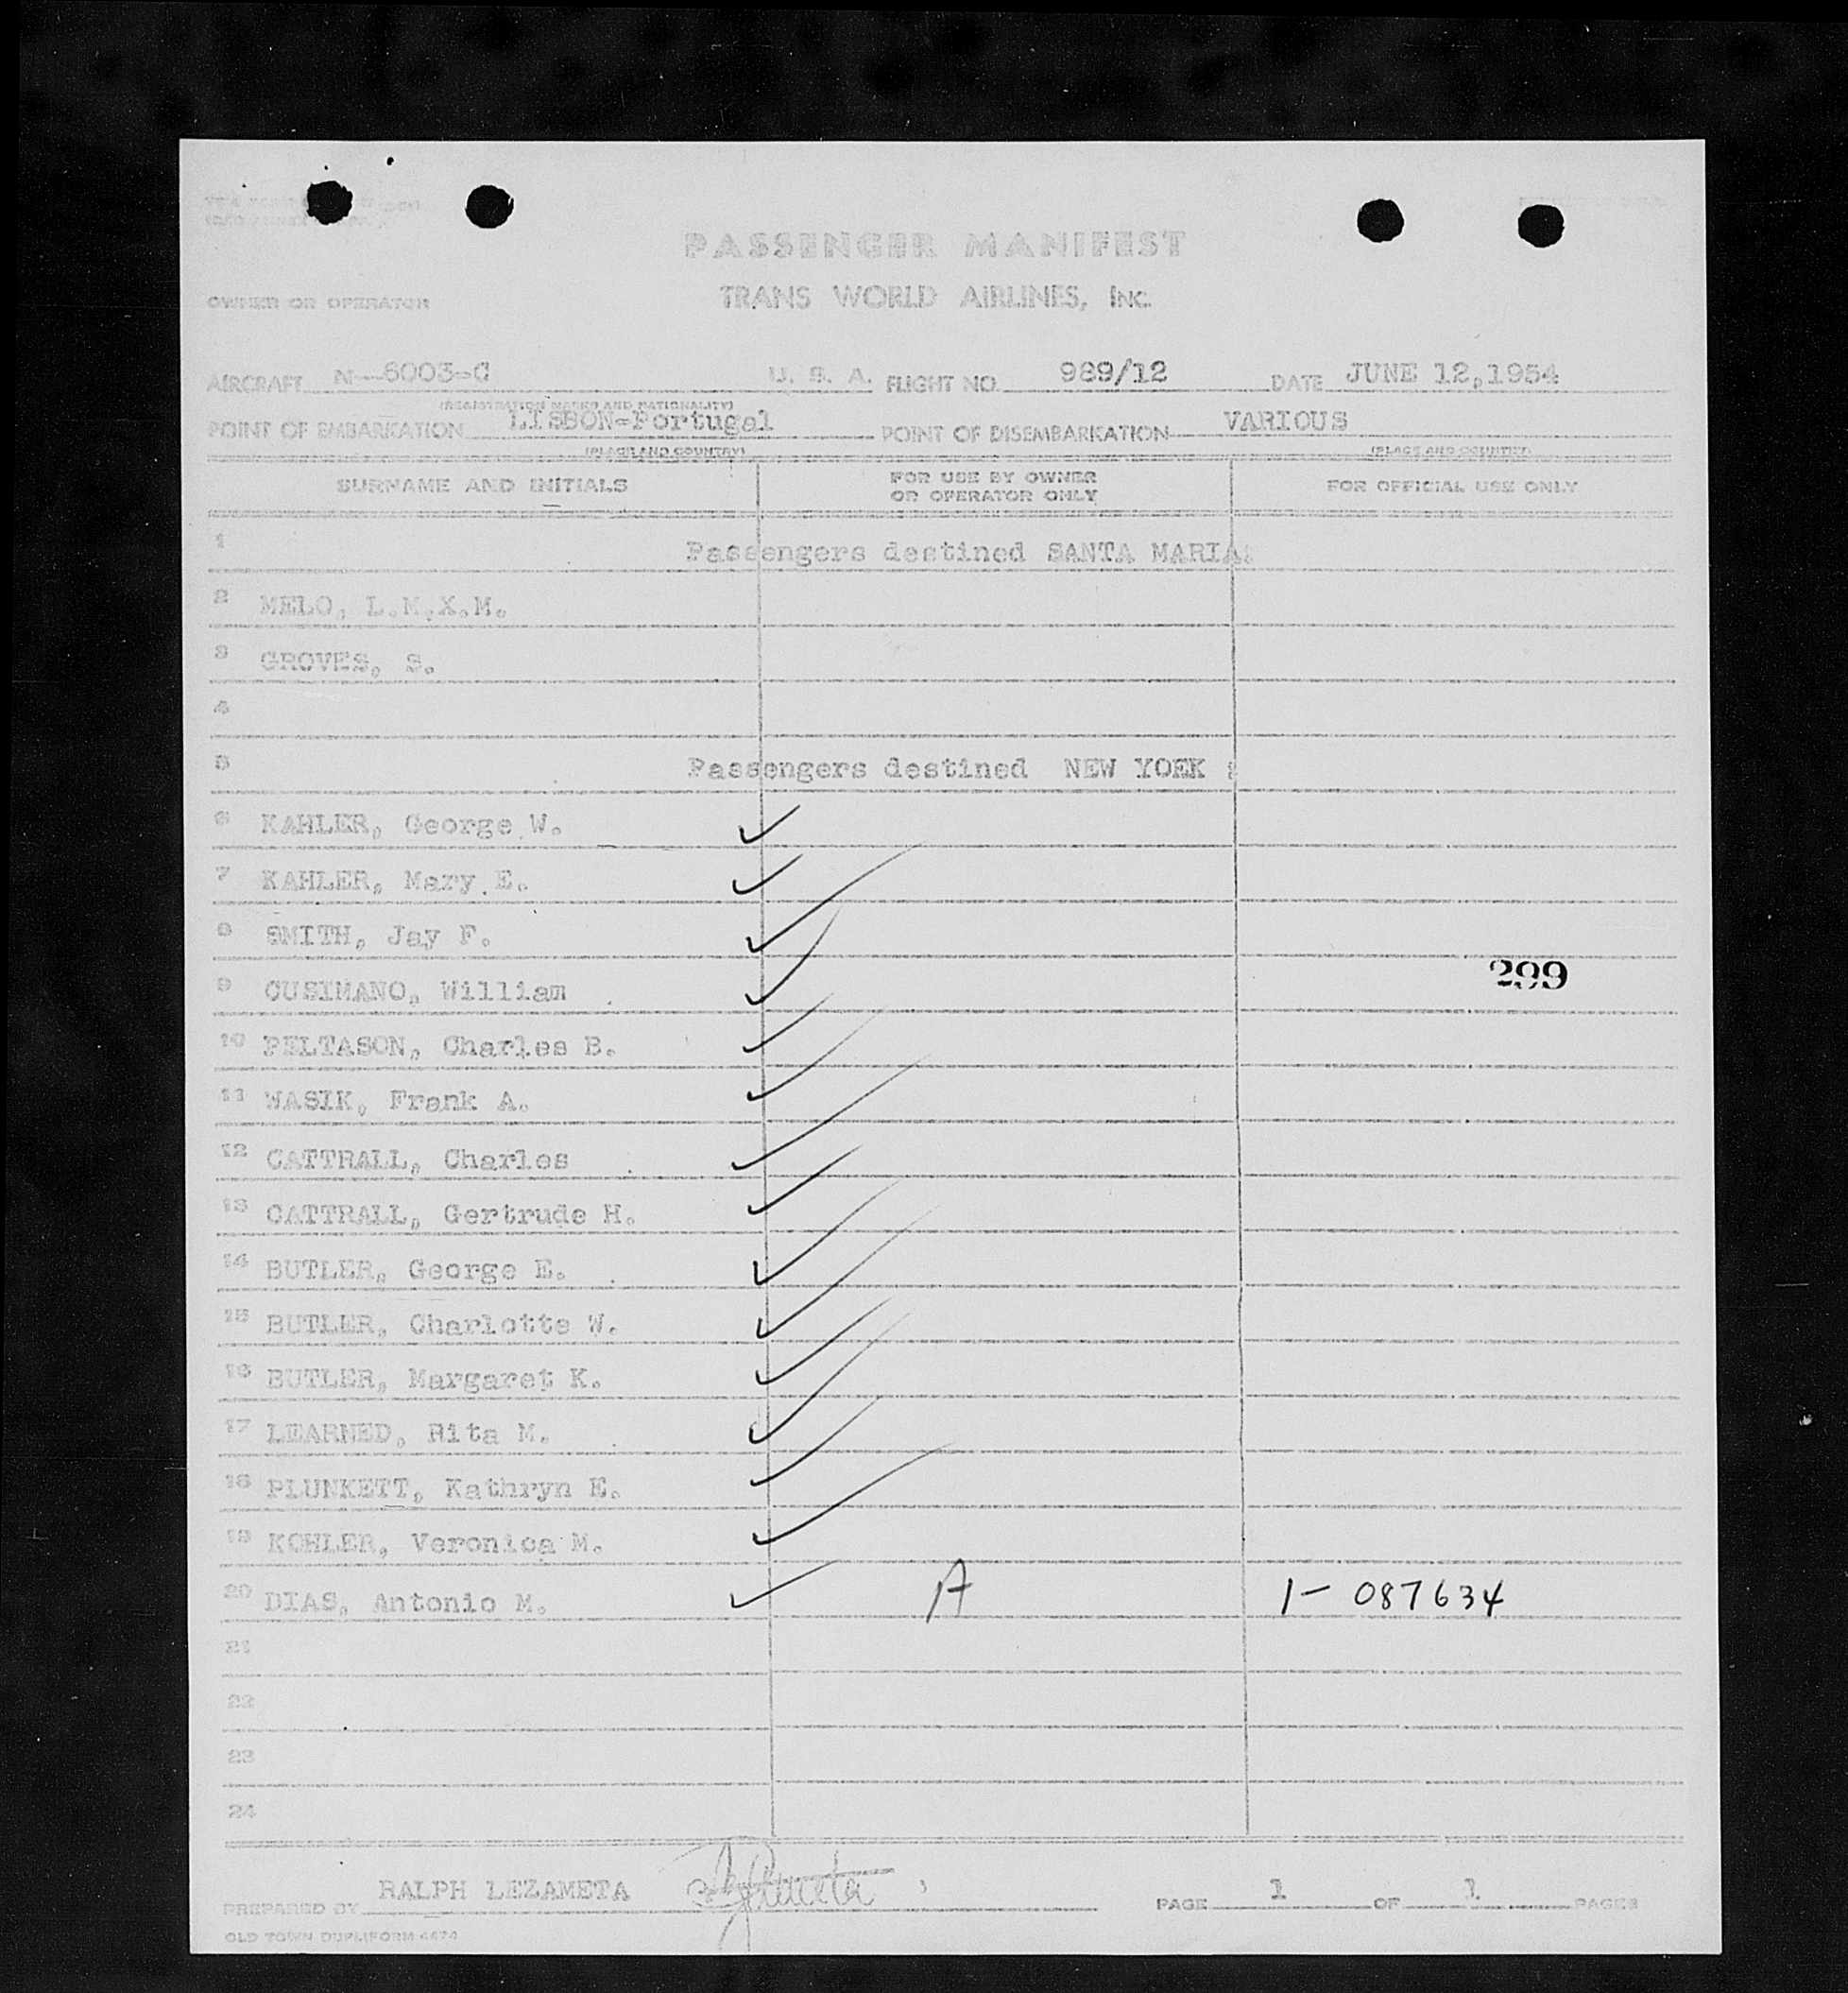 PASSENGER MANIFEST
OWNER OR OPERATOR TRANS WORLD AIRLINES, INC.
AIRCRAFT N--6003-C U. S. A. FLIGHT NO. 989/12 DATE JUNE 12,1954
(REGISTRATION MARKS AND NATIONALITY)
POINT OF EMBARKATION LISBON-Portugal POINT OF DISEMBARKATION VARIOUS
(PLACE AND COUNTRY) (PLACE AND COUNTRY)
SURNAME AND INITIALS FOR USE BY OWNER OR OPERATOR ONLY FOR OFFICIAL USE ONLY
1 Passengers destined SANTA MARIA:
2 MELO, L.M.X.M.
3 GROVES, S.
4
5 Passengers destined NEW YORK :
6 KAHLER, George W.
7 KAHLER, Mary E.
8 SMITH, Jay F.
299
9 CUSIMANO, William
10 PELTASON, Charles B.
11 WASIK, Frank A.
12 CATTRALL, Charles
13 CATTRALL, Gertrude H.
14 BUTLER, George E.
15 BUTLER, Charlotte W.
16 BUTLER, Margaret K.
17 LEARNED, Rita M.
18 PLUNKETT, Kathryn E.
19 KOHLER, Veronica M.
20 DIAS, Antonio M. A 1- 087634
21
22
23
24
PREPARED BY RALPH LEZAMETA PAGE 1 OF 1 PAGES
OLD TOWN DUPLIFORM 4474